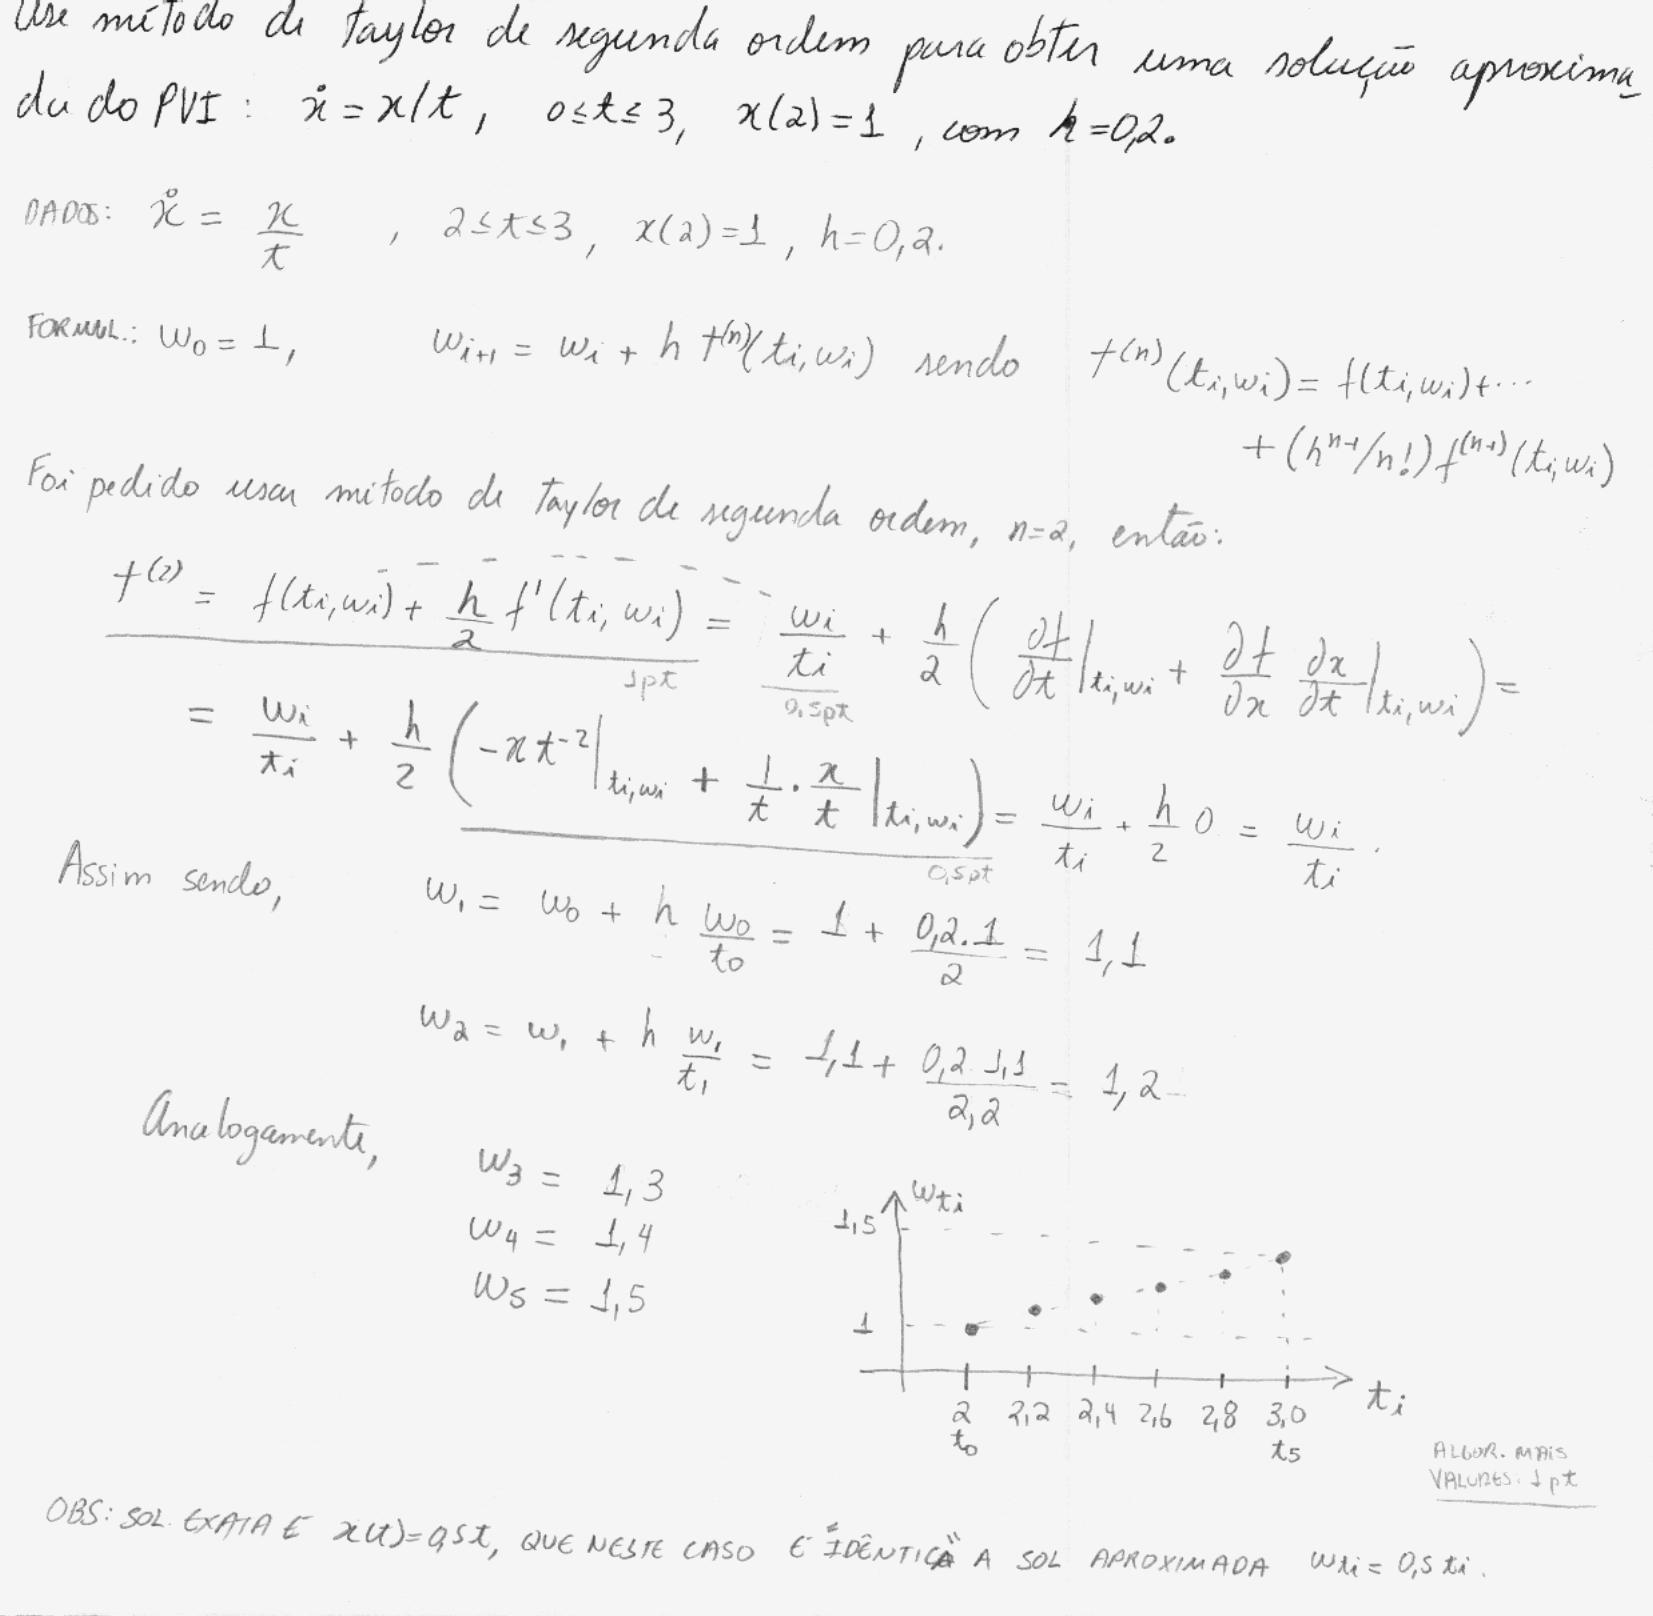 Use método de Taylor de segunda ordem para obter uma solução aproxima-
da do PVI: ẋ = x/t, 0≤t≤3, x(2)=1, com h=0,2.
DADOS: ẋ = x/t , 2≤t≤3, x(2)=1, h=0,2.
FORMUL.: w₀ = 1, wᵢ₊₁ = wᵢ + h T⁽ⁿ⁾(tᵢ,wᵢ) sendo T⁽ⁿ⁾(tᵢ,wᵢ) = f(tᵢ,wᵢ)+...
+ (hⁿ⁻¹/n!) f⁽ⁿ⁻¹⁾(tᵢ,wᵢ)
Foi pedido usar método de Taylor de segunda ordem, n=2, então:
T⁽²⁾ = f(tᵢ,wᵢ) + h/2 f'(tᵢ,wᵢ) = wᵢ/tᵢ + h/2 (∂f/∂t|tᵢ,wᵢ + ∂f/∂x ∂x/∂t|tᵢ,wᵢ) =
1pt 0,5pt
= wᵢ/tᵢ + h/2 (-x t⁻²|tᵢ,wᵢ + 1/t · x/t|tᵢ,wᵢ) = wᵢ/tᵢ + h/2 0 = wᵢ/tᵢ .
0,5pt
Assim sendo, w₁ = w₀ + h w₀/t₀ = 1 + 0,2.1/2 = 1,1
w₂ = w₁ + h w₁/t₁ = 1,1 + 0,2 1,1/2,2 = 1,2
Analogamente, w₃ = 1,3
w₄ = 1,4
w₅ = 1,5
wtᵢ
1,5
1
2 2,2 2,4 2,6 2,8 3,0 tᵢ
t₀ t₅
ALGOR. MAIS
VALORES: 1pt
OBS: SOL. EXATA É x(t)=0,5t, QUE NESTE CASO É "IDÊNTICA" A SOL APROXIMADA wtᵢ = 0,5 tᵢ.